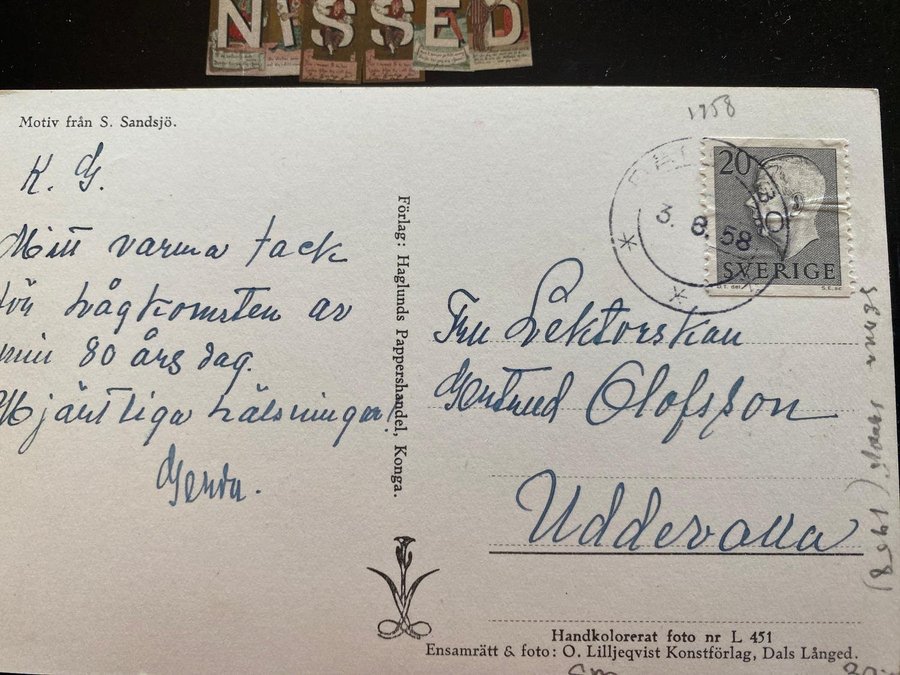 NISSED
1958
Motiv från S. Sandsjö.
K. G.
Mitt varma tack
för hågkomsten av
min 80 års dag.
Hjärtliga hälsningar!
Gerda.
Förlag: Haglunds Pappershandel, Konga.
3. 8. 58
20
SVERIGE
Fru Lektorskan
Gertrud Olofsson
Uddevalla
(1958)
Handkolorerat foto nr L 451
Ensamrätt & foto: O. Lilljeqvist Konstförlag, Dals Långed.